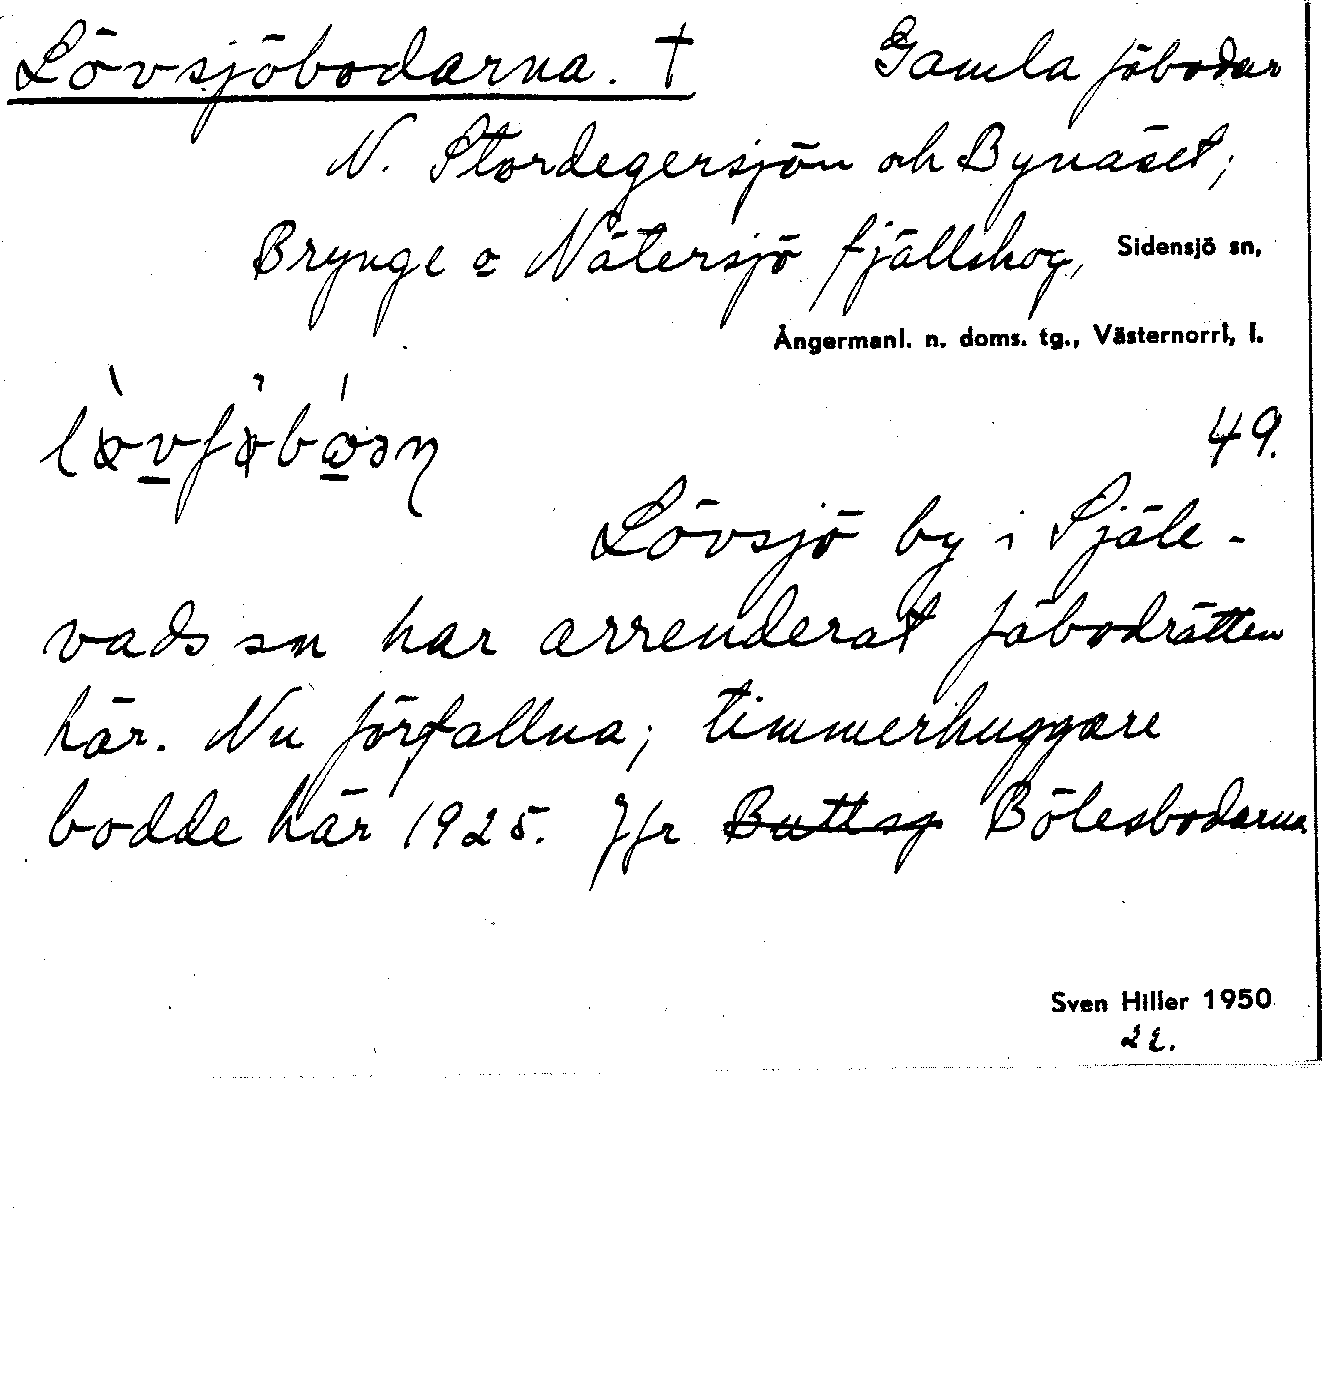 Lövsjöbodarna. † Gamla fäbodar
N. Stordegersjön och Bynäset;
Brynge o Nätersjö fjällskog, Sidensjö sn,
Ångermanl. n. doms. tg., Västernorrl, l.
49.
Lövsjö by i Själe-
vads sn har arrenderat fäbodrätten
här. Nu förfallna; timmerhuggare
bodde här 1925. Jfr Buttsj Bölesbodarna
Sven Hiller 1950